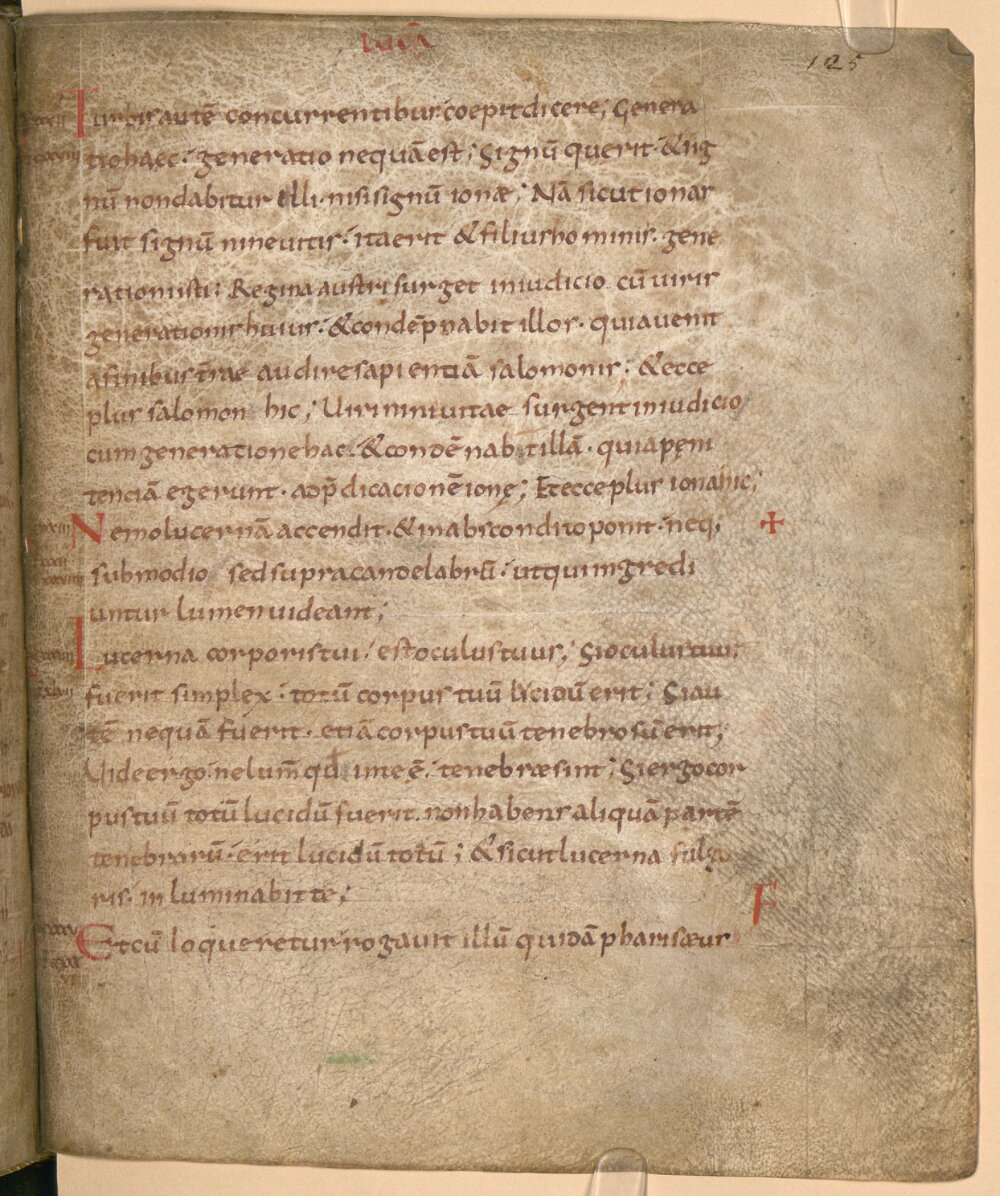 LUCĀ
125
Turbis autē concurrentibus coepit dicere; Genera
tio haec· generatio nequā est; Signū querit· & sig
nū non dabitur illi· nisi signū ionæ; Nā sicut ionas
fuit signū nineuitis· ita erit & filius hominis· gene
rationi isti; Regina austri surget in iudicio cū uiris
generationis huius· & condēpnabit illos· quia uenit
a finibus t̄rae audire sapientiā salomonis· & ecce
plus salomon hic; Uiri niniuitae surgent in iudicio
cum generatione hac· & condēnabit illā· quia pęni
tenciā egerunt· ad p̄dicacionē ionę; Et ecce plus iona hic;
Nemo lucernā accendit· & in abscondito ponit· neq;
sub modio sed supra candelabrū· ut qui ingredi
untur lumen uideant;
Lucerna corporis tui· est oculus tuus; Si oculus tuus
fuerit simplex· totū corpus tuū lucidū erit; Si au
tē nequā fuerit· etiā corpus tuū tenebrosū erit;
Uide ergo ne lum̄ qd in te ē· tenebræ sint; Si ergo cor
pus tuū totū lucidū fuerit· non habens aliquā partē
tenebrarū· erit lucidū totū; & sicut lucerna fulgo
ris· inluminabit te;
F
Et cū loqueretur rogauit illū quidā pharisæus